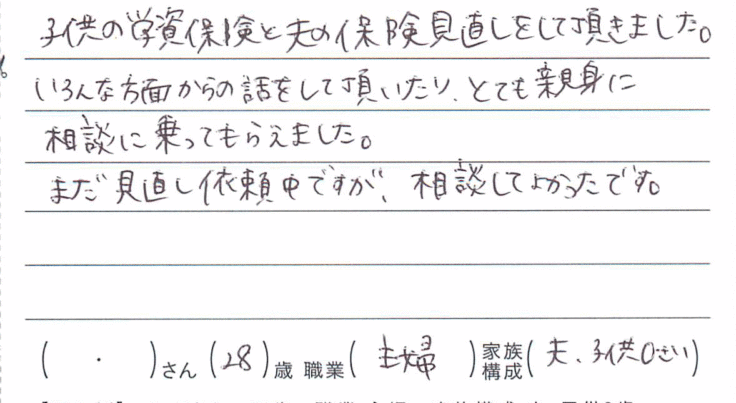 子供の学資保険と夫の保険見直しをして頂きました。
いろんな方面からの話をして頂いたり、とても親身に
相談に乗ってもらえました。
まだ見直し依頼中ですが、相談してよかったです。
( ・ )さん (28)歳 職業( 主婦 )家族構成( 夫、子供0さい)